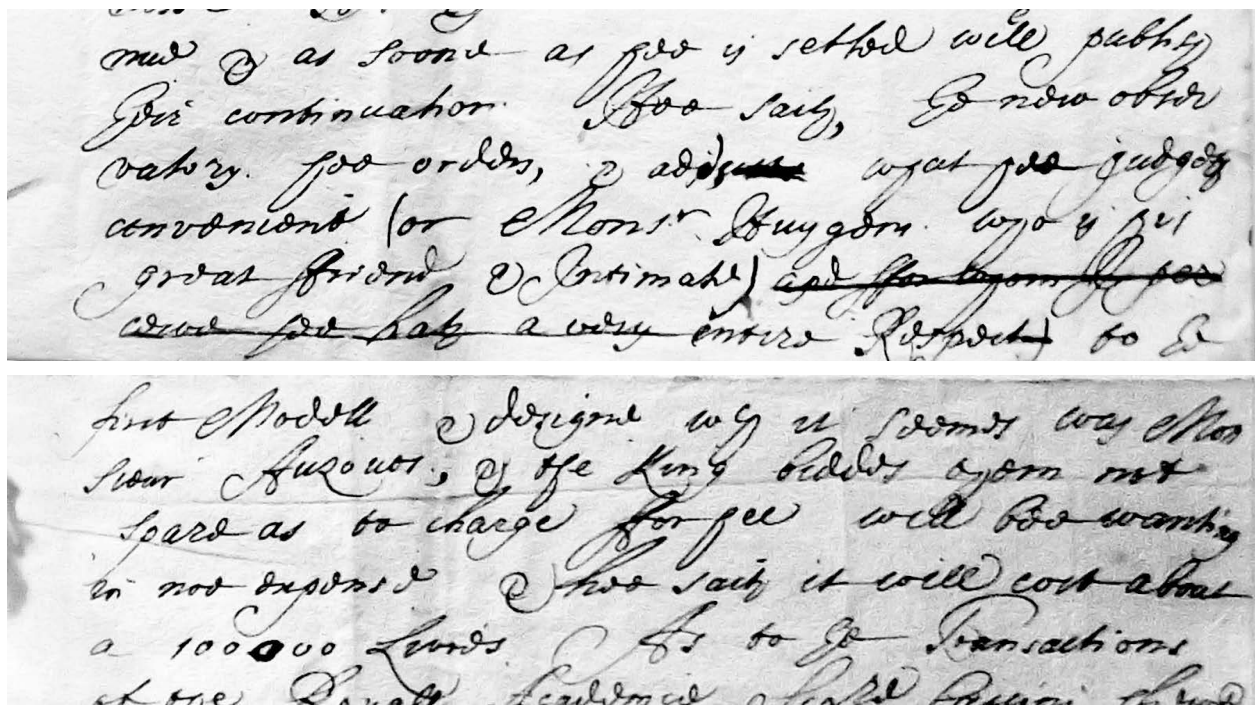 mee & as soone as hee is setled will publish
their continuation. Hee saith, the new obser
vatory. hee orders, & adds what hee judgeth
convenient (or Monsr. Huygens. who is his
great ffriend & Intimate) and ffor whom
hee hath a very entire Respect) to the
first Modell & designe wch it seemes was Mon
sieur Auzouts, & the King bidds them not
spare as to charge ffor hee will bee wanting
in noe expense & hee saith it will cost about
a 100000 Livres As to the Transactions
of the Royall Academie